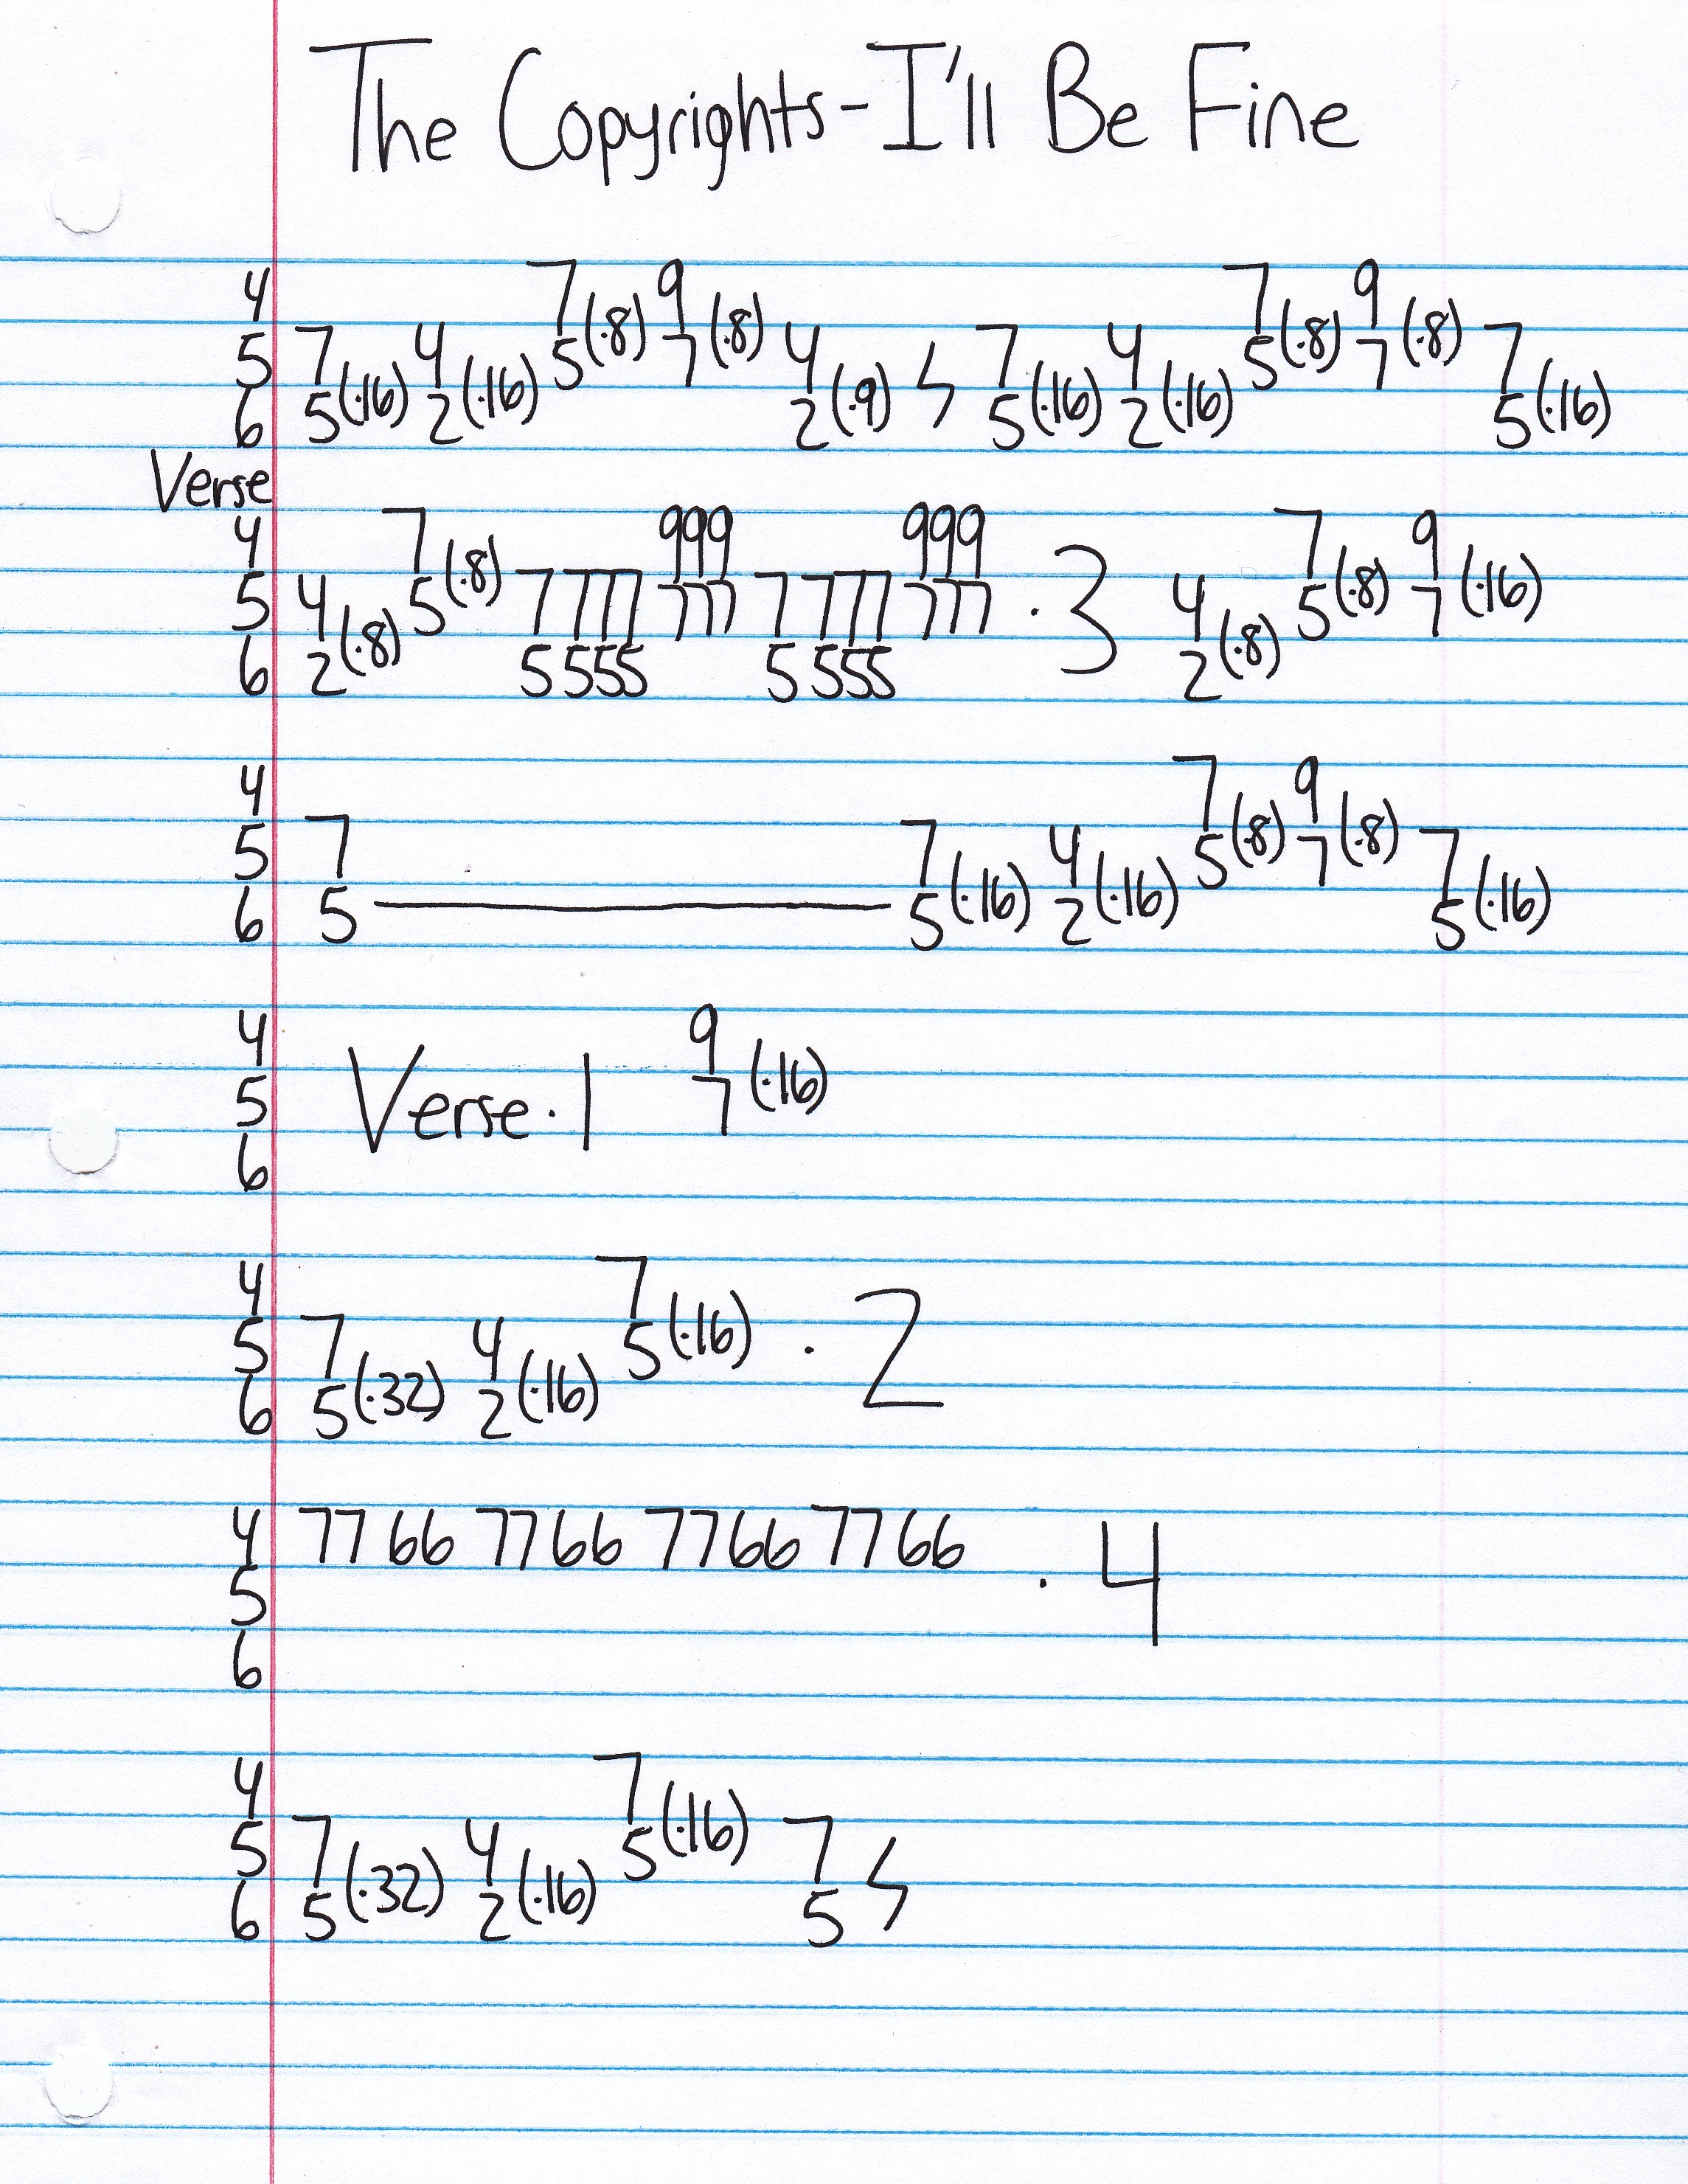 The Copyrights - I'll Be Fine
4 7(·8) 9 7 9
5 7 4 5(·8) 7(·8) 4 7 4 5(·8) 7(·8) 7
6 5(·16) 2(·16) 2(·9) ϟ 5(·16) 2(·16) 5(·16)
Verse
4 7 999 999 7 9
5 4 5(·8) 7 777 777 7 777 777 · 3 4 5(·8) 7(·16)
6 2(·8) 5 555 5 555 2(·8)
4 7 9
5 7 7 4 5(·8) 7(·8) 7
6 5 — 5(·16) 2(·16) 5(·16)
4 9
5 Verse · 1 7(·16)
6
4 7
5 7 4 5(·16) · 2
6 5(·32) 2(·16)
4 77 66 77 66 77 66 77 66
5 · 4
6
4 7
5 7 4 5(·16) 7
6 5(·32) 2(·16) 5 ϟ